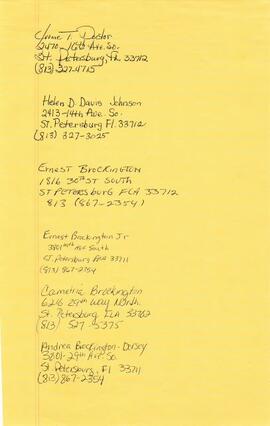 Irvine T. Pastor
2470-16th Ave. So.
St. Petersburg, Fla 33712
(813) 327-4715
Helen D. Davis Johnson
2413-14th Ave. So.
St. Petersburg Fl. 33712
(813) 327-3025
Ernest Brockington
1816 30th ST SOUTH
ST PETERSBURG FLA 33712
813 (867-2354)
Ernest Brockington Jr
3801 Ave South
ST. Petersburg Fla 33711
(813) 867-2354
Cametria Brockington
6216 29th Way North.
St. Petersburg FLA 33702
(813) 527-5375
Andrea Brockington-Dorsey
3801-29th Ave So.
St. Petersburg, Fl 33711
(813) 867-2354